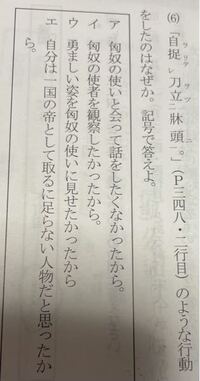 (6)「自捉レ刀立二牀頭一。」(P三四八・二行目)のような行動
をしたのはなぜか。記号で答えよ。
ア 匈奴の使いと会って話をしたくなかったから。
イ 匈奴の使者を観察したかったから。
ウ 勇ましい姿を匈奴の使いに見せたかったから
エ 自分は一国の帝として取るに足らない人物だと思ったか
ら。